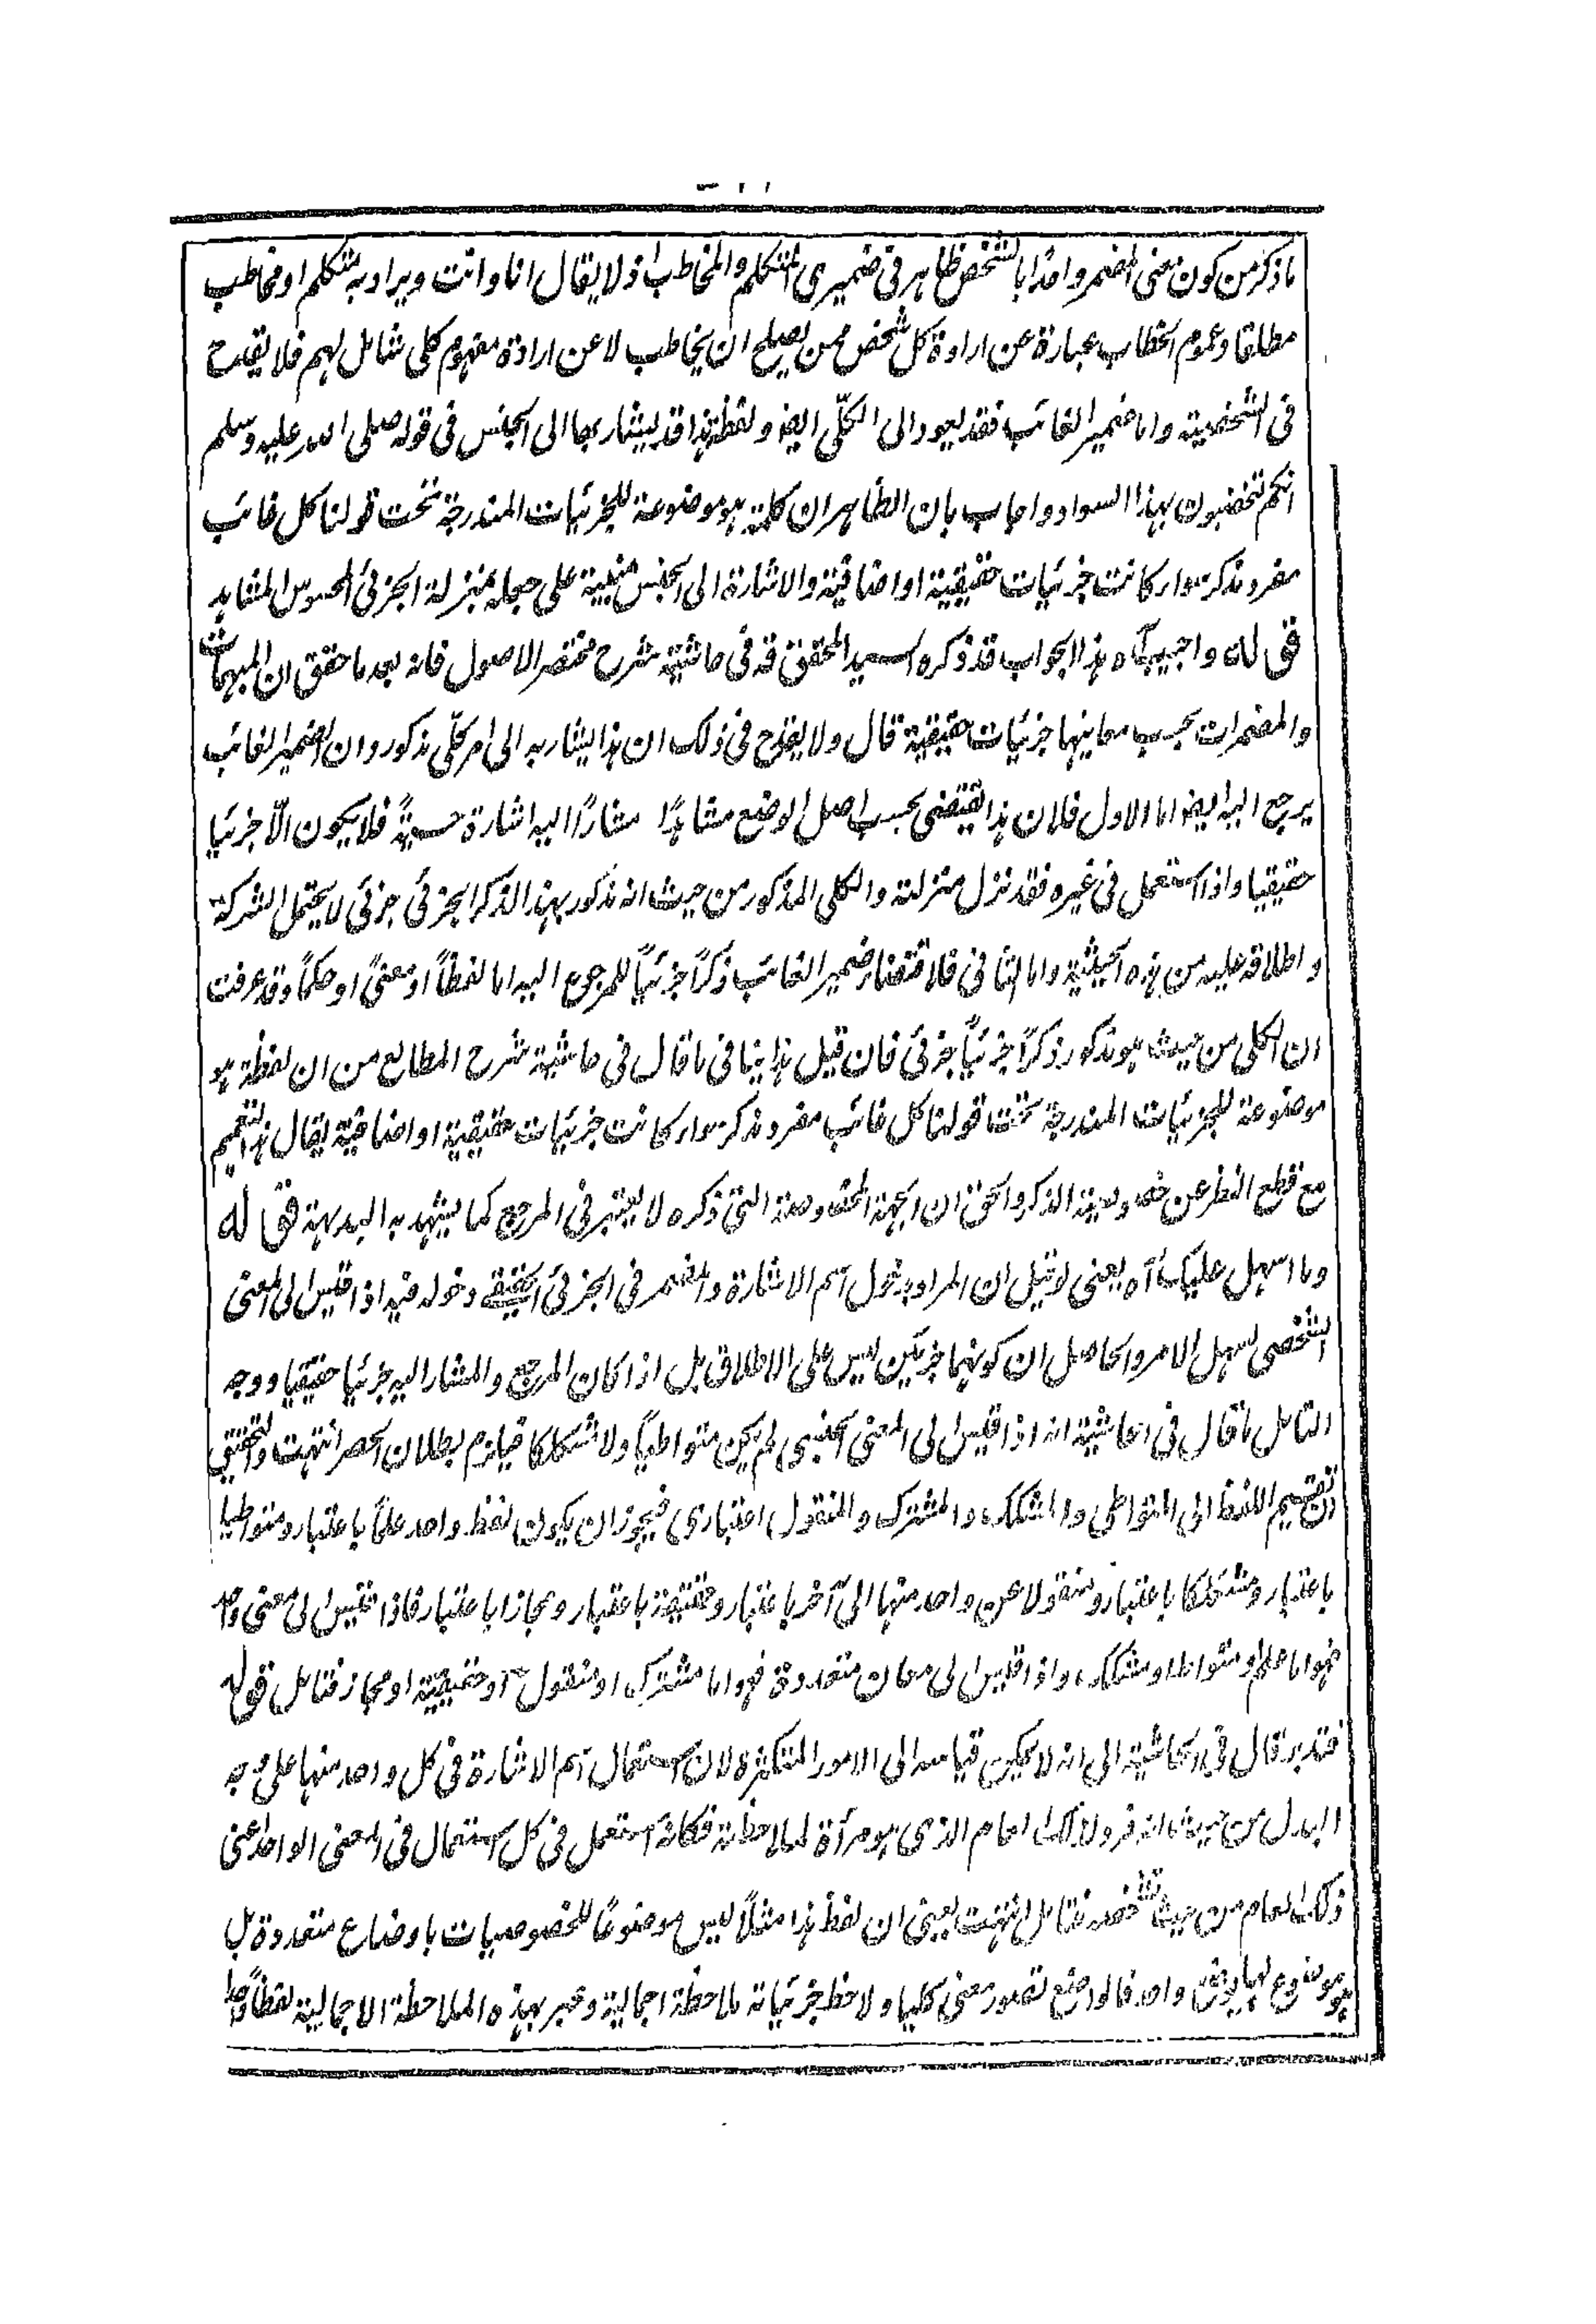 ما ذكر من كون معنى المضمر واحدا بالشخص ظاهر فى ضميرى المتكلم والمخاطب اذ لا يقال انا وانت ويراد به متكلم او مخاطب
مطلقا وعموم الخطاب عبارة عن ارادة كل شخص ممن يصلح ان يخاطب لا عن ارادة مفهوم كلى شامل لهم فلا يقدح
فى الشخصية واما ضمير الغائب فقد يعود الى الكلّى ايضا ولفظة هذا قد يشار بها الى الجنس فى قوله صلى الله عليه وسلم
انكم تخضبون بهذا السواد واجاب بان الظاهر ان كلمة هو موضوعة للجزئيات المندرجة تحت قولنا كل غائب
مفرد مذكر سواء كانت جزئيات حقيقية او اضافية والاشارة الى الجنس مبنية على جعله بمنزلة الجزئى المحسوس المشاهد
قوله واجيب آه هذا الجواب قد ذكره السيد المحقق قد فى حاشية شرح مختصر الاصول فانه بعد ما حقق ان المبهمات
والمضمرات بحسب معانيها جزئيات حقيقية قال ولا يقدح فى ذلك ان هذا يشار به الى امر كلّى مذكور وان الضمير الغائب
يرجع اليه ايضا اما الاول فلان هذا يقتضى بحسب اصل الوضع مشاهدًا مشارًا اليه اشارة حسيةً فلا يكون الّا جزئيا
حقيقيا واذا استعمل فى غيره فقد نزل منزلته والكلى المذكور من حيث انه مذكور بهذا الذكر الجزئى جزئى لا يحتمل الشركة
واطلاقه عليه من هذه الحيثية واما الثانى فلاقتضاء ضمير الغائب ذكرًا جزئيًا للمرجوع اليه اما لفظًا او معنىً او حكمًا وقد عرفت
ان الكلى من حيث هو مذكور ذكرًا جزئيًا جزئى فان قيل هذا ينافى ما قال فى حاشية شرح المطالع من ان لفظة هو
موضوعة للجزئيات المندرجة تحت قولنا كل غائب مفرد مذكر سواء كانت جزئيات حقيقية او اضافية يقال هذا التعميم
مع قطع النظر عن خصوصية الذكر والحق ان الجهة المخصوصة التى ذكره لا يعتبر فى المرجع كما يشهد به البديهة قوله
وما اسهل عليك آه يعنى لو قيل ان المراد بدخول اسم الاشارة والمضمر فى الجزئى الحقيقى دخوله فيه اذا قيس الى المعنى
الشخصى لسهل الامر والحاصل ان كونهما جزئين ليس على الاطلاق بل اذا كان المرجع والمشار اليه جزئيا حقيقيا ووجه
التامل ما قال فى الحاشية انه اذا قيس الى المعنى الجنسى لم يكن متواطيًا ولا مشككا فيلزم بطلان الحصر انتهت والتحقيق
ان تقسيم اللفظ الى المتواطى والمشكك والمشترك والمنقول اعتبارى فيجوز ان يكون لفظ واحد علمًا باعتبار ومتواطيا
باعتبار ومشككا باعتبار ومنقولا عن واحد منها الى آخر باعتبار وحقيقة باعتبار ومجازا باعتبار فاذا قيس الى معنى واحد
فهو اما علم او متواط او مشكك واذا قيس الى معان متعددة فهو اما مشترك او منقول او حقيقية او مجاز فتامل قوله
فتدبر قال فى الحاشية الى انه لا يمكن قياسه الى الامور المتكثرة لان استعمال اسم الاشارة فى كل واحد منها على وجه
البدل من حيث انه فرد لذلك العام الذى هو مرآة لملاحظته فكانه استعمل فى كل استعمال فى المعنى الواحد اعنى
ذلك العام من حيث تشخصه فتامل انتهت يعنى ان لفظ هذا مثلًا ليس موضوعًا للخصوصيات باوضاع متعددة بل
هو موضوع لها بوضع واحد فالواضع تصور معنى كليا ولاحظ جزئياته ملاحظة اجمالية وعبر بهذه الملاحظة الاجمالية لفظًا واحدا